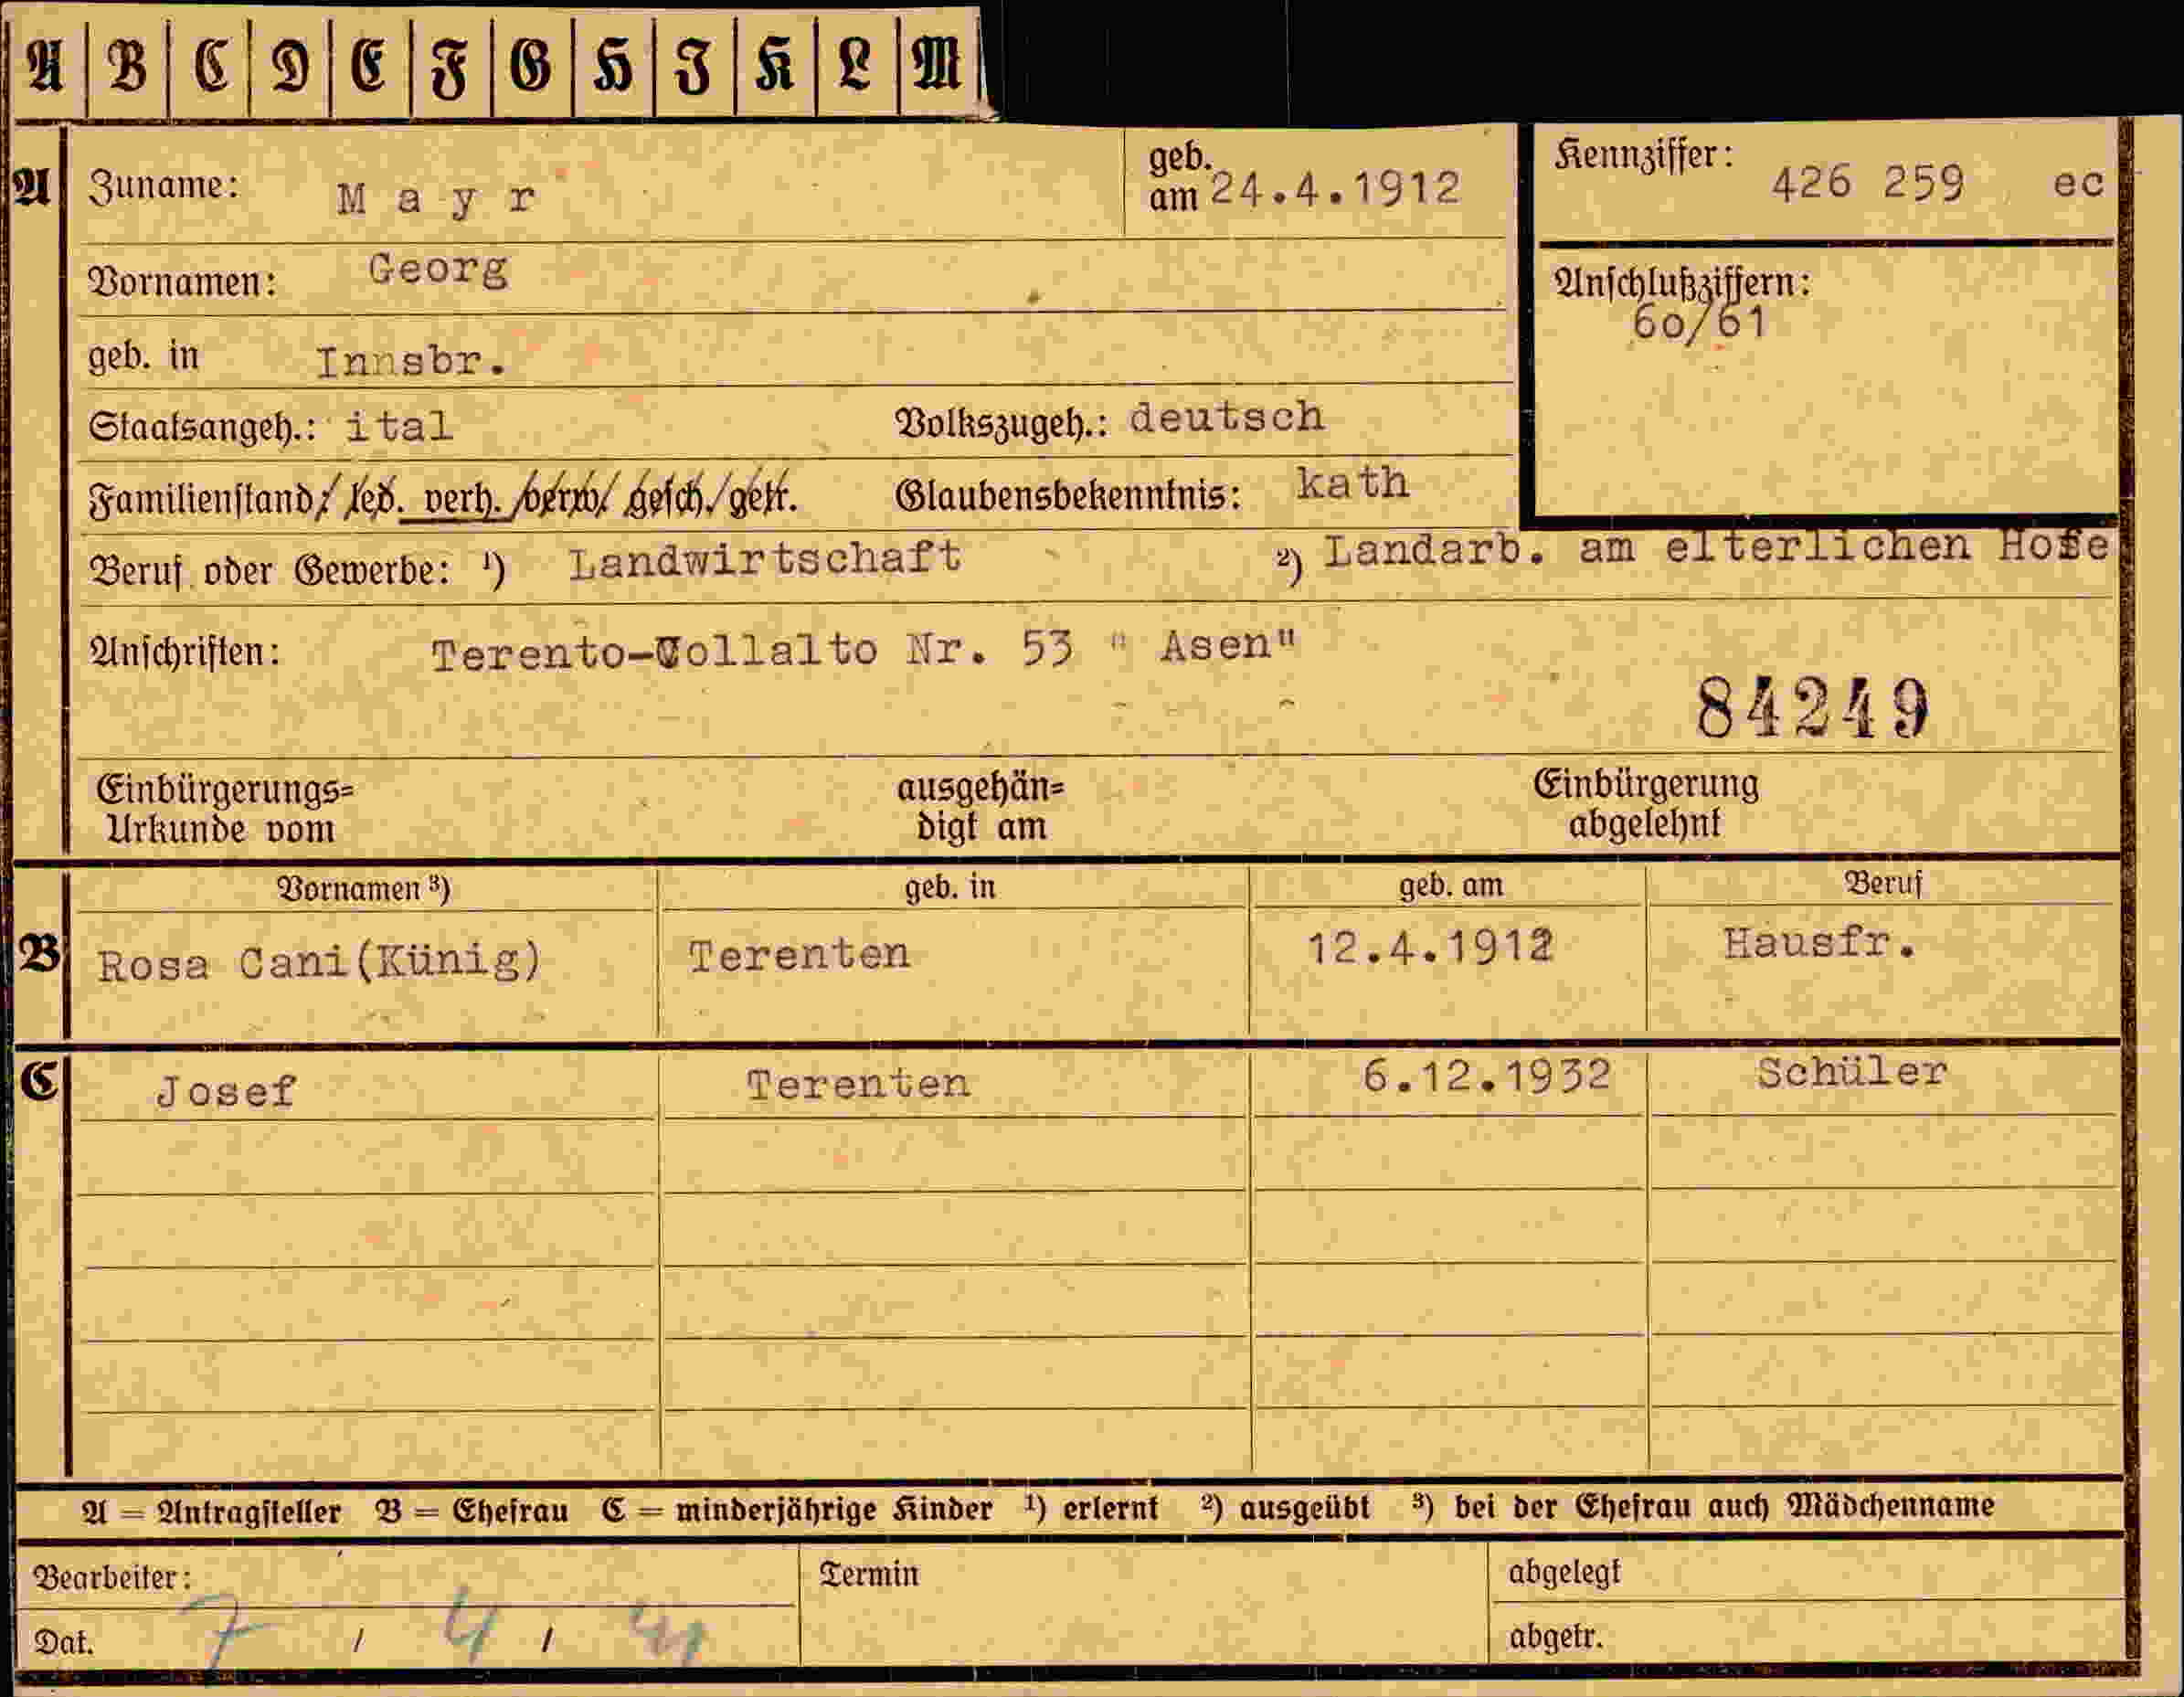 A B C D E F G H J K L M
A Zuname: Mayr geb. am 24.4.1912 Kennziffer: 426 259 ec
Vornamen: Georg Anschlußziffern: 60/61
geb. in Innsbr.
Staatsangeh.: ital Volkszugeh.: deutsch
Familienstand: led. verh. verw. gesch. getr. Glaubensbekenntnis: kath
Beruf oder Gewerbe: ¹) Landwirtschaft ²) Landarb. am elterlichen Hofe
Anschriften: Terento-Collalto Nr. 53 " Asen"
84249
Einbürgerungs= ausgehän= Einbürgerung
Urkunde vom digt am abgelehnt
Vornamen ³) geb. in geb. am Beruf
B Rosa Cani(Künig) Terenten 12.4.1912 Hausfr.
C Josef Terenten 6.12.1932 Schüler
A = Antragsteller B = Ehefrau C = minderjährige Kinder ¹) erlernt ²) ausgeübt ³) bei der Ehefrau auch Mädchenname
Bearbeiter: Termin abgelegt
Dat. 7 / 4 / 41 abgetr.